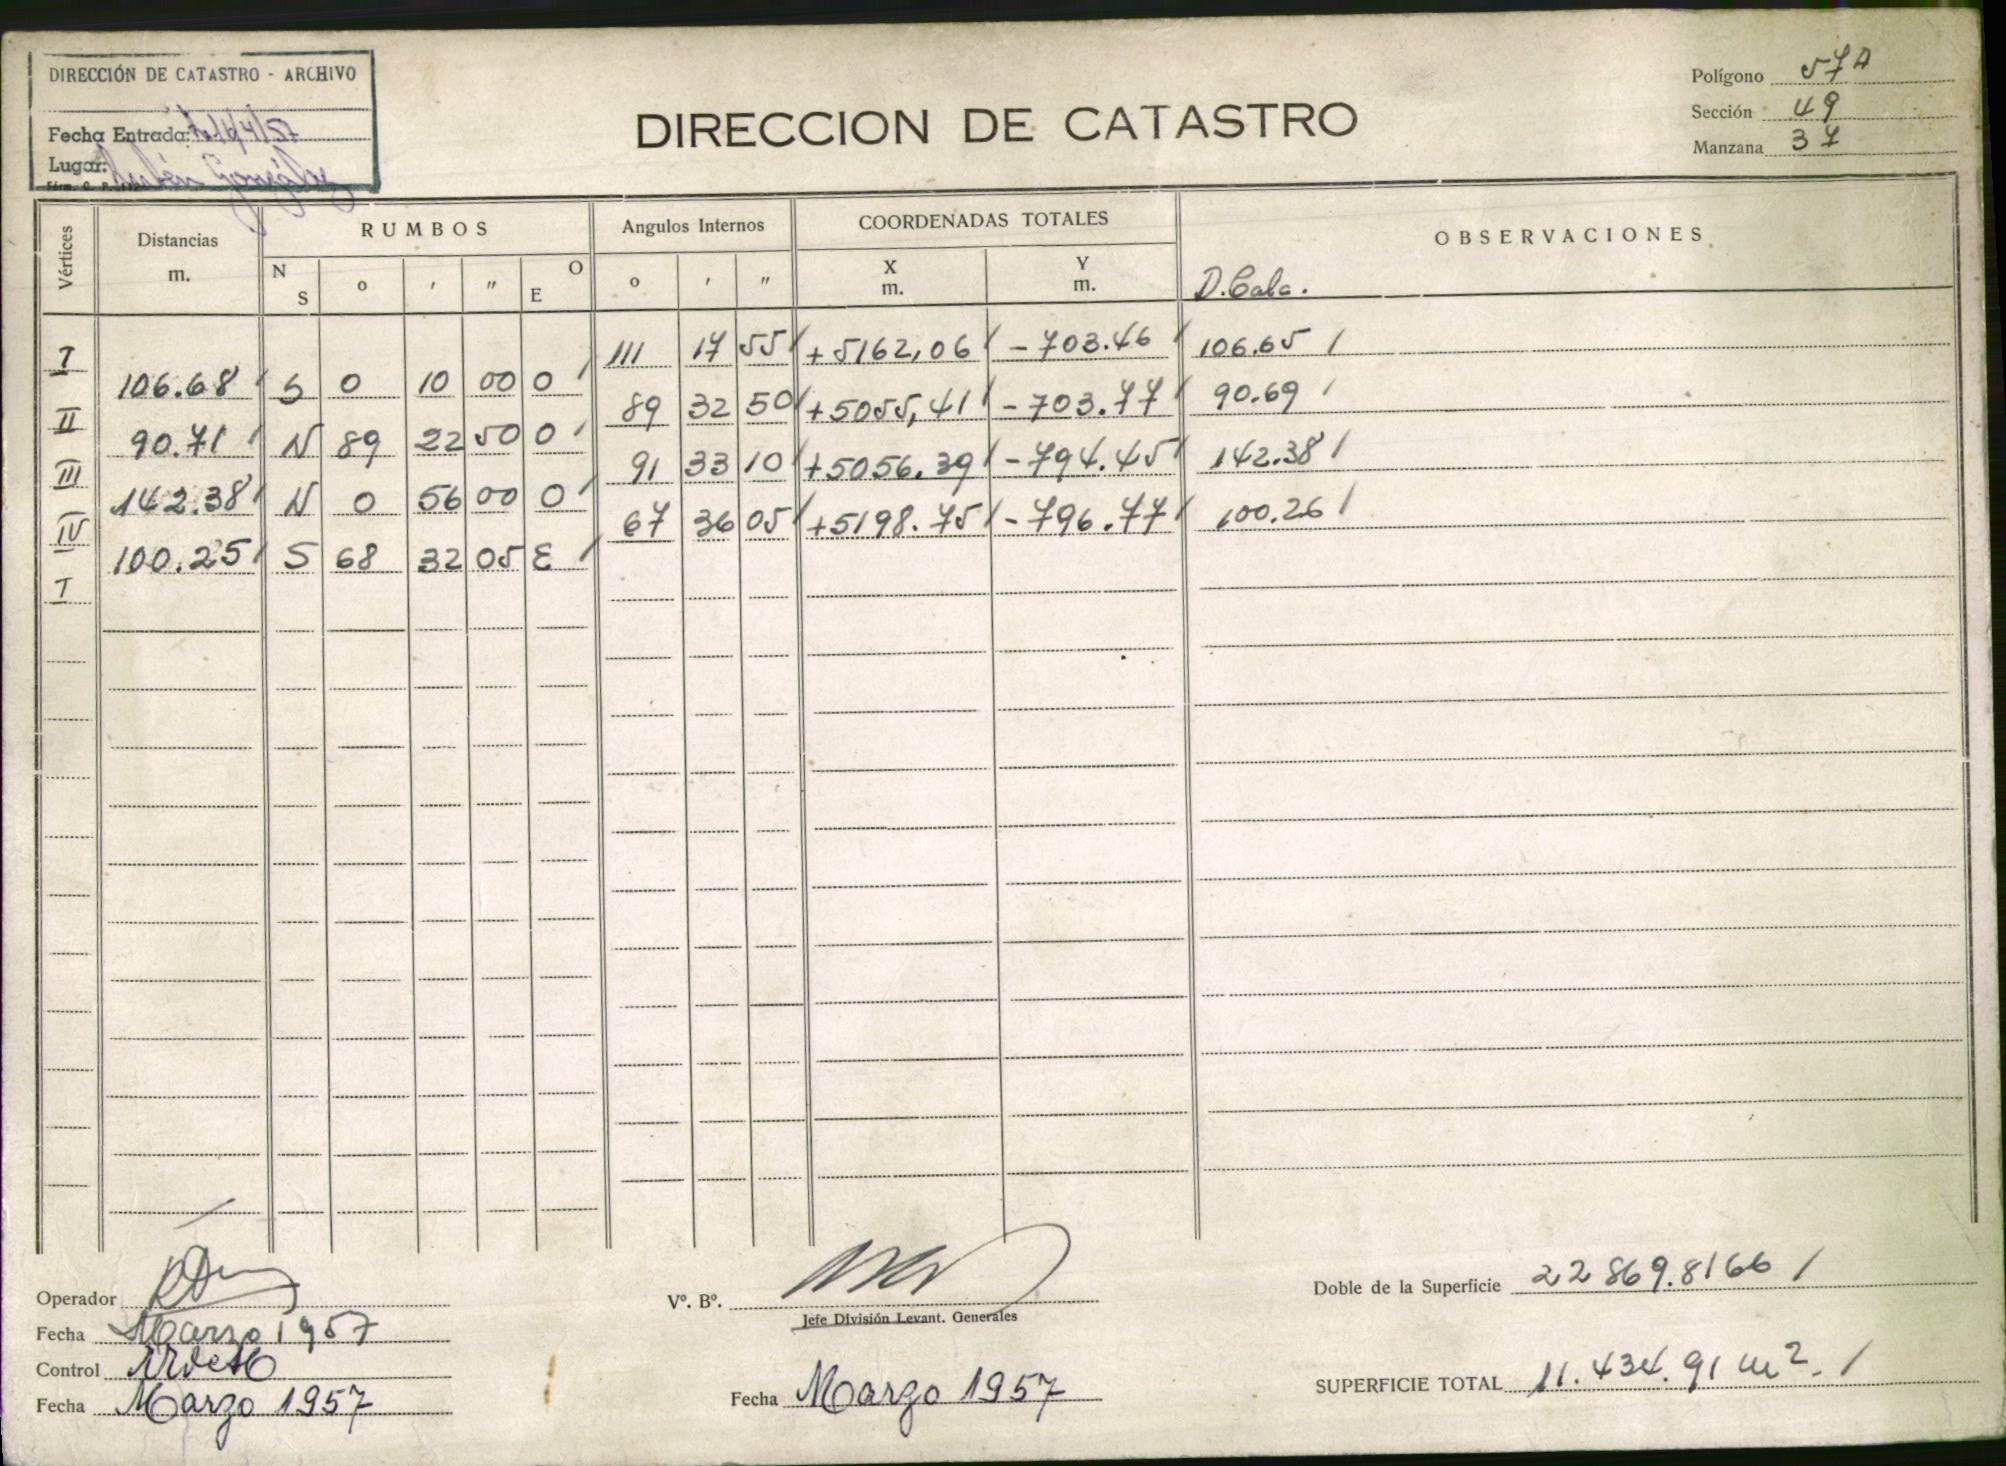 DIRECCIÓN DE CATASTRO - ARCHIVO
Fecha Entrada: /4/57
Lugar: Rubén González
DIRECCION DE CATASTRO
Polígono 57A
Sección 49
Manzana 37
Vértices Distancias m. RUMBOS Angulos Internos COORDENADAS TOTALES OBSERVACIONES
N S o ' " O E o ' " X m. Y m. D. Calc.
I 111 17 55 +5162,06 -703.46 106.65
106.68 S 0 10 00 O
II 89 32 50 +5055,41 -703.77 90.69
90.71 N 89 22 50 O
III 91 33 10 +5056.39 -794.45 142.38
142.38 N 0 56 00 O
IV 67 36 05 +5198.75 -796.77 100.26
100.25 S 68 32 05 E
I
Operador
Fecha Marzo 1957
Control
Fecha Marzo 1957
Vº. Bº.
Jefe División Levant. Generales
Fecha Marzo 1957
Doble de la Superficie 22869.8166
SUPERFICIE TOTAL 11.434.91 m2.